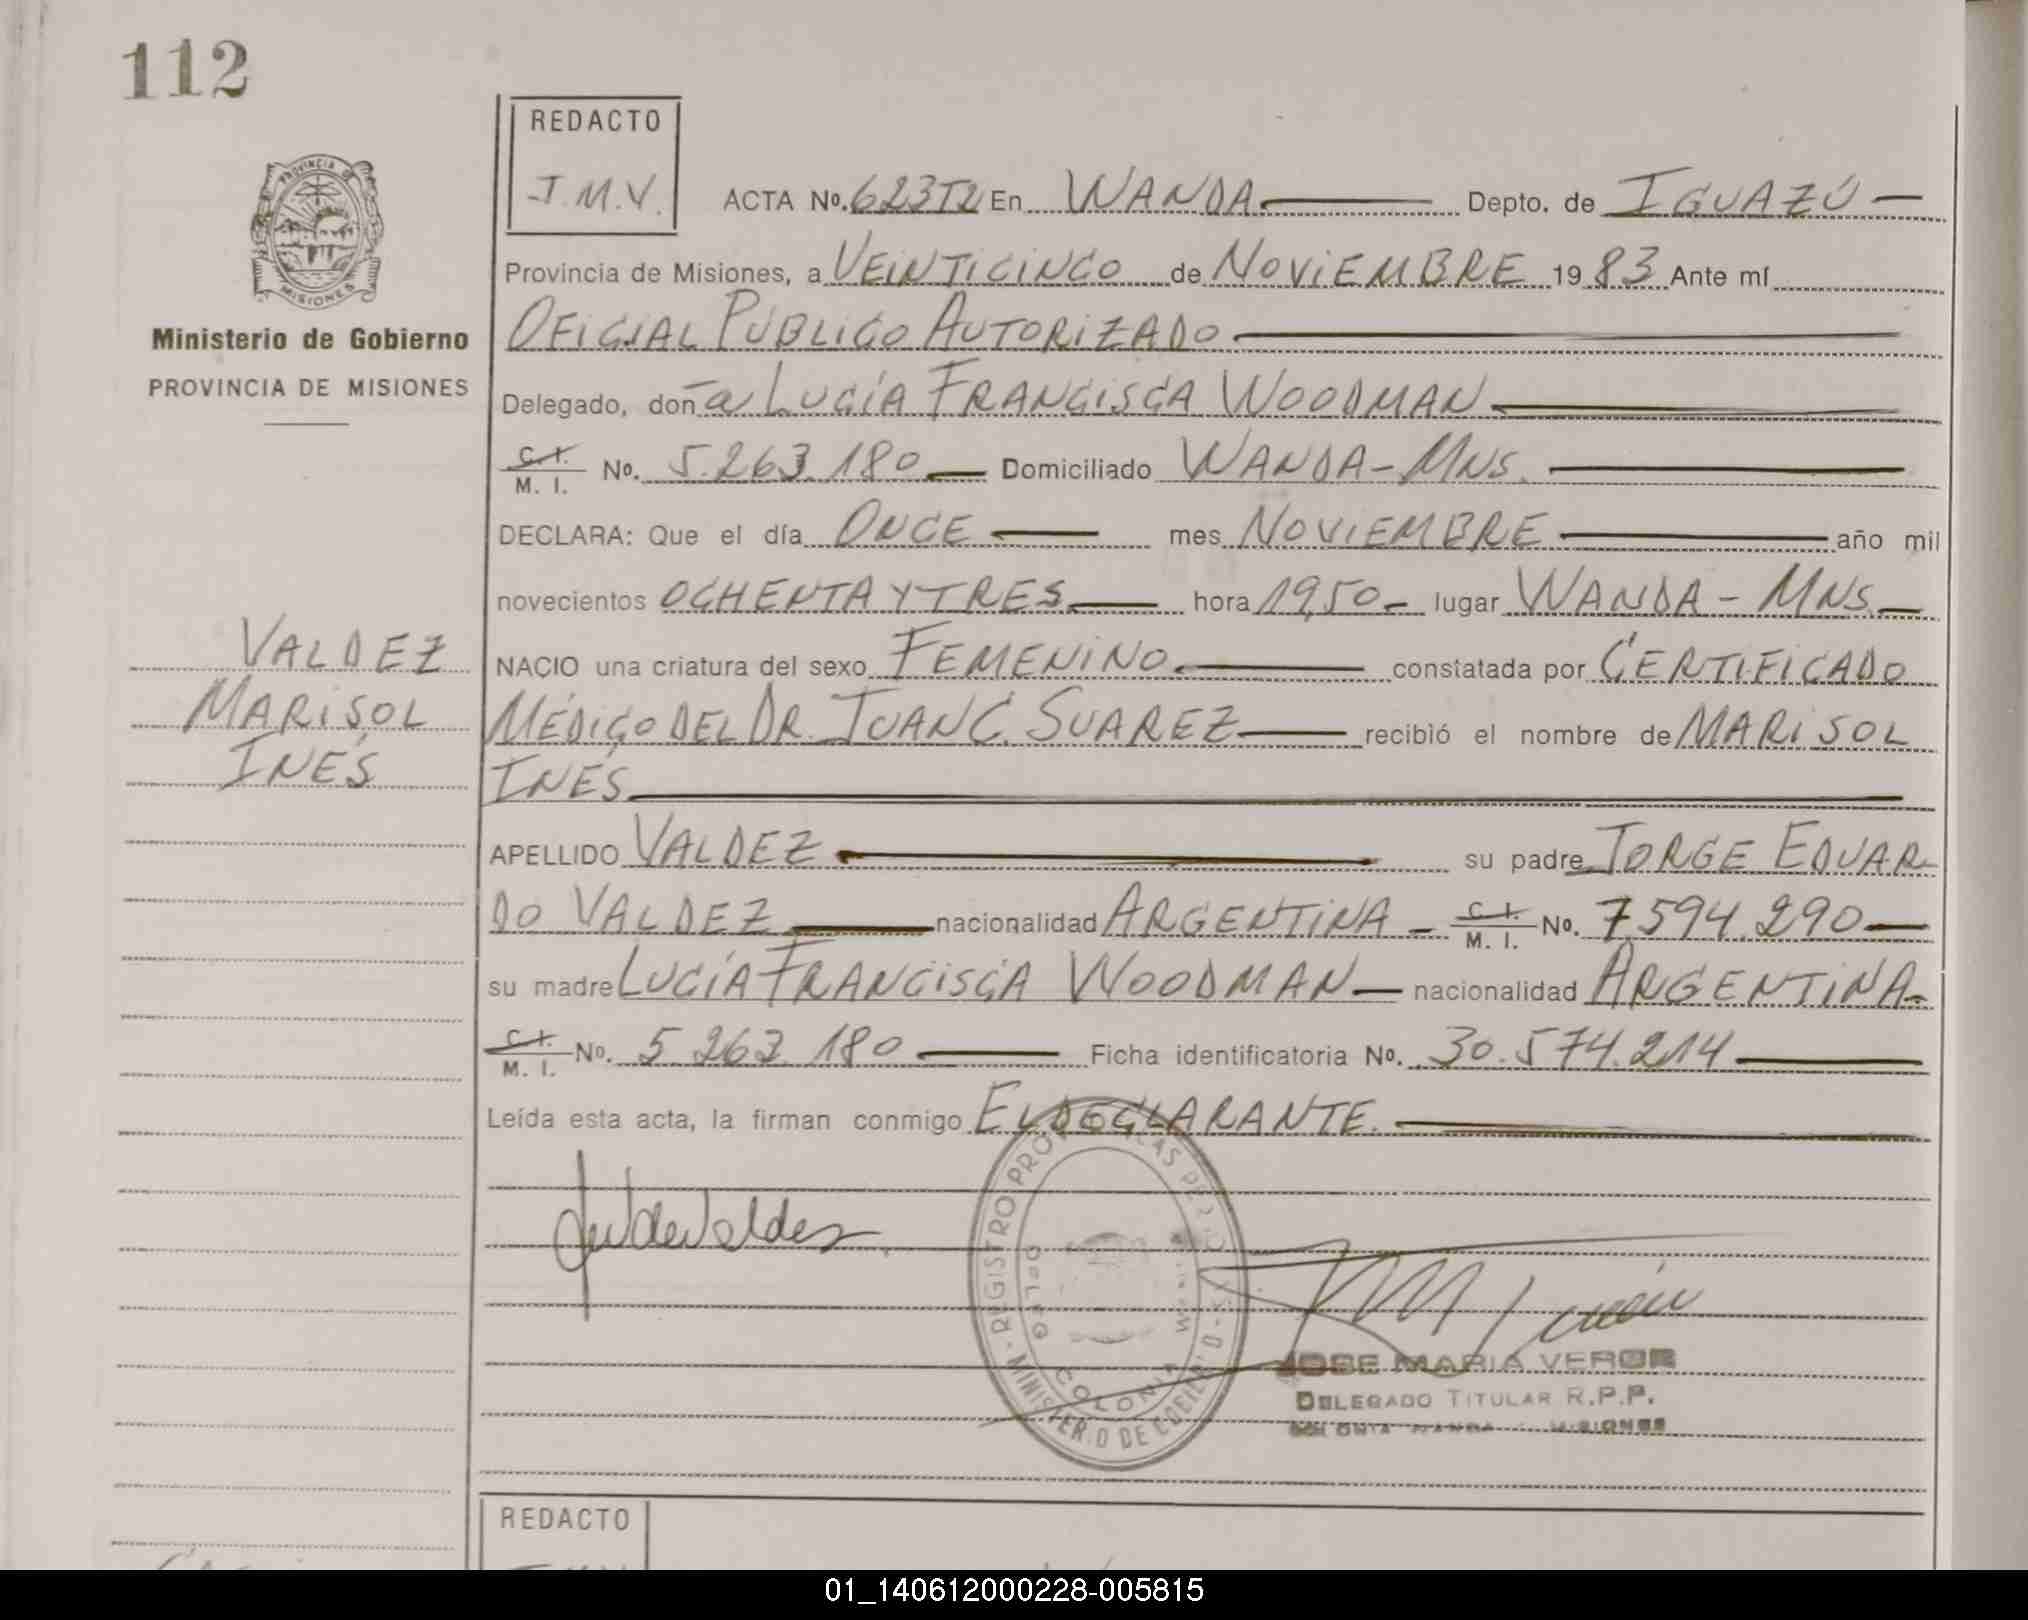 112
REDACTO
J.M.V.
ACTA No. 623T2 En WANDA Depto. de IGUAZÚ
Provincia de Misiones, a VEINTICINCO de NOVIEMBRE 1983 Ante mí
OFICIAL PÚBLICO AUTORIZADO
Delegado, doña LUCÍA FRANCISCA WOODMAN
C.I. M. I. No. 5.263.180 Domiciliado WANDA - MNS.
DECLARA: Que el día ONCE mes NOVIEMBRE año mil
novecientos OCHENTA Y TRES hora 19,50 lugar WANDA - MNS.
NACIO una criatura del sexo FEMENINO constatada por CERTIFICADO
MÉDICO DEL DR. JUAN C. SUAREZ recibió el nombre de MARISOL
INÉS
APELLIDO VALDEZ su padre JORGE EDUAR
DO VALDEZ nacionalidad ARGENTINA - C.I. M. I. No. 7594.290
su madre LUCÍA FRANCISCA WOODMAN nacionalidad ARGENTINA
C.I. M. I. No. 5.263.180 Ficha identificatoria No. 30.574.214
Leída esta acta, la firman conmigo EL DECLARANTE.
PROVINCIA DE
MISIONES
Ministerio de Gobierno
PROVINCIA DE MISIONES
VALDEZ
MARISOL
INÉS
REGISTRO
MINISTERIO DE
COLONIA
JOSE MARIA
DELEGADO TITULAR R.P.P.
COLONIA WANDA - MISIONES
REDACTO
01_140612000228-005815